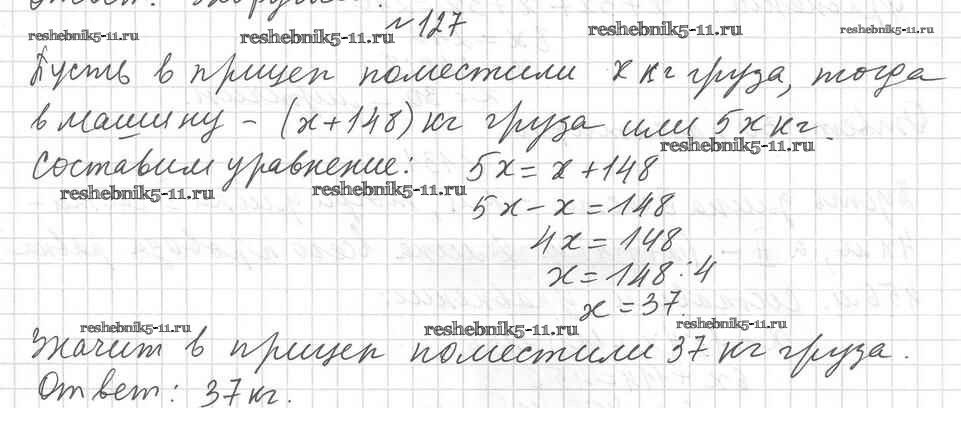 №127
reshebnik5-11.ru reshebnik5-11.ru reshebnik5-11.ru reshebnik5-11.ru
Пусть в прицеп поместили x кг груза, тогда
в машину - (x+148) кг груза или 5x кг.
reshebnik5-11.ru
Составим уравнение: 5x = x + 148
reshebnik5-11.ru reshebnik5-11.ru
5x - x = 148
4x = 148
x = 148 : 4
x = 37.
reshebnik5-11.ru reshebnik5-11.ru reshebnik5-11.ru
Значит в прицеп поместили 37 кг груза.
Ответ: 37 кг.